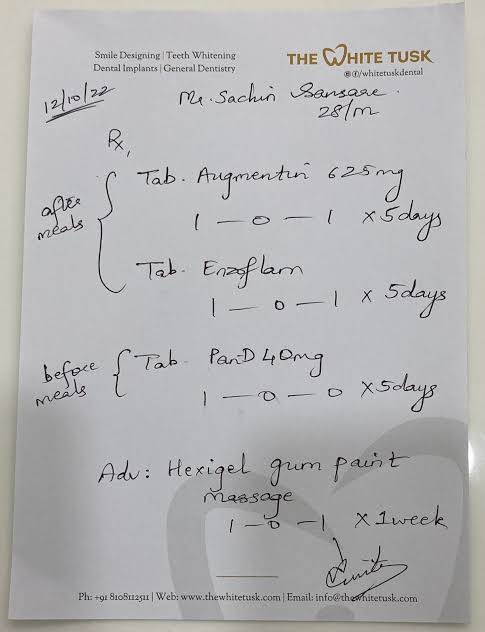 Smile Designing | Teeth Whitening
Dental Implants | General Dentistry
THE WHITE TUSK
/whitetuskdental
12/10/22
Mr. Sachin Sansare.
28/M
Rx,
after meals
Tab. Augmentin 625mg
1 — 0 — 1 x 5days
Tab. Enzoflam
1 — 0 — 1 x 5days
before meals
Tab. PanD 40mg
1 — 0 — 0 x 5days
Adv: Hexigel gum paint
massage
1 - 0 - 1 x 1 week
Ph: +91 8108112511 | Web: www.thewhitetusk.com | Email: info@thewhitetusk.com